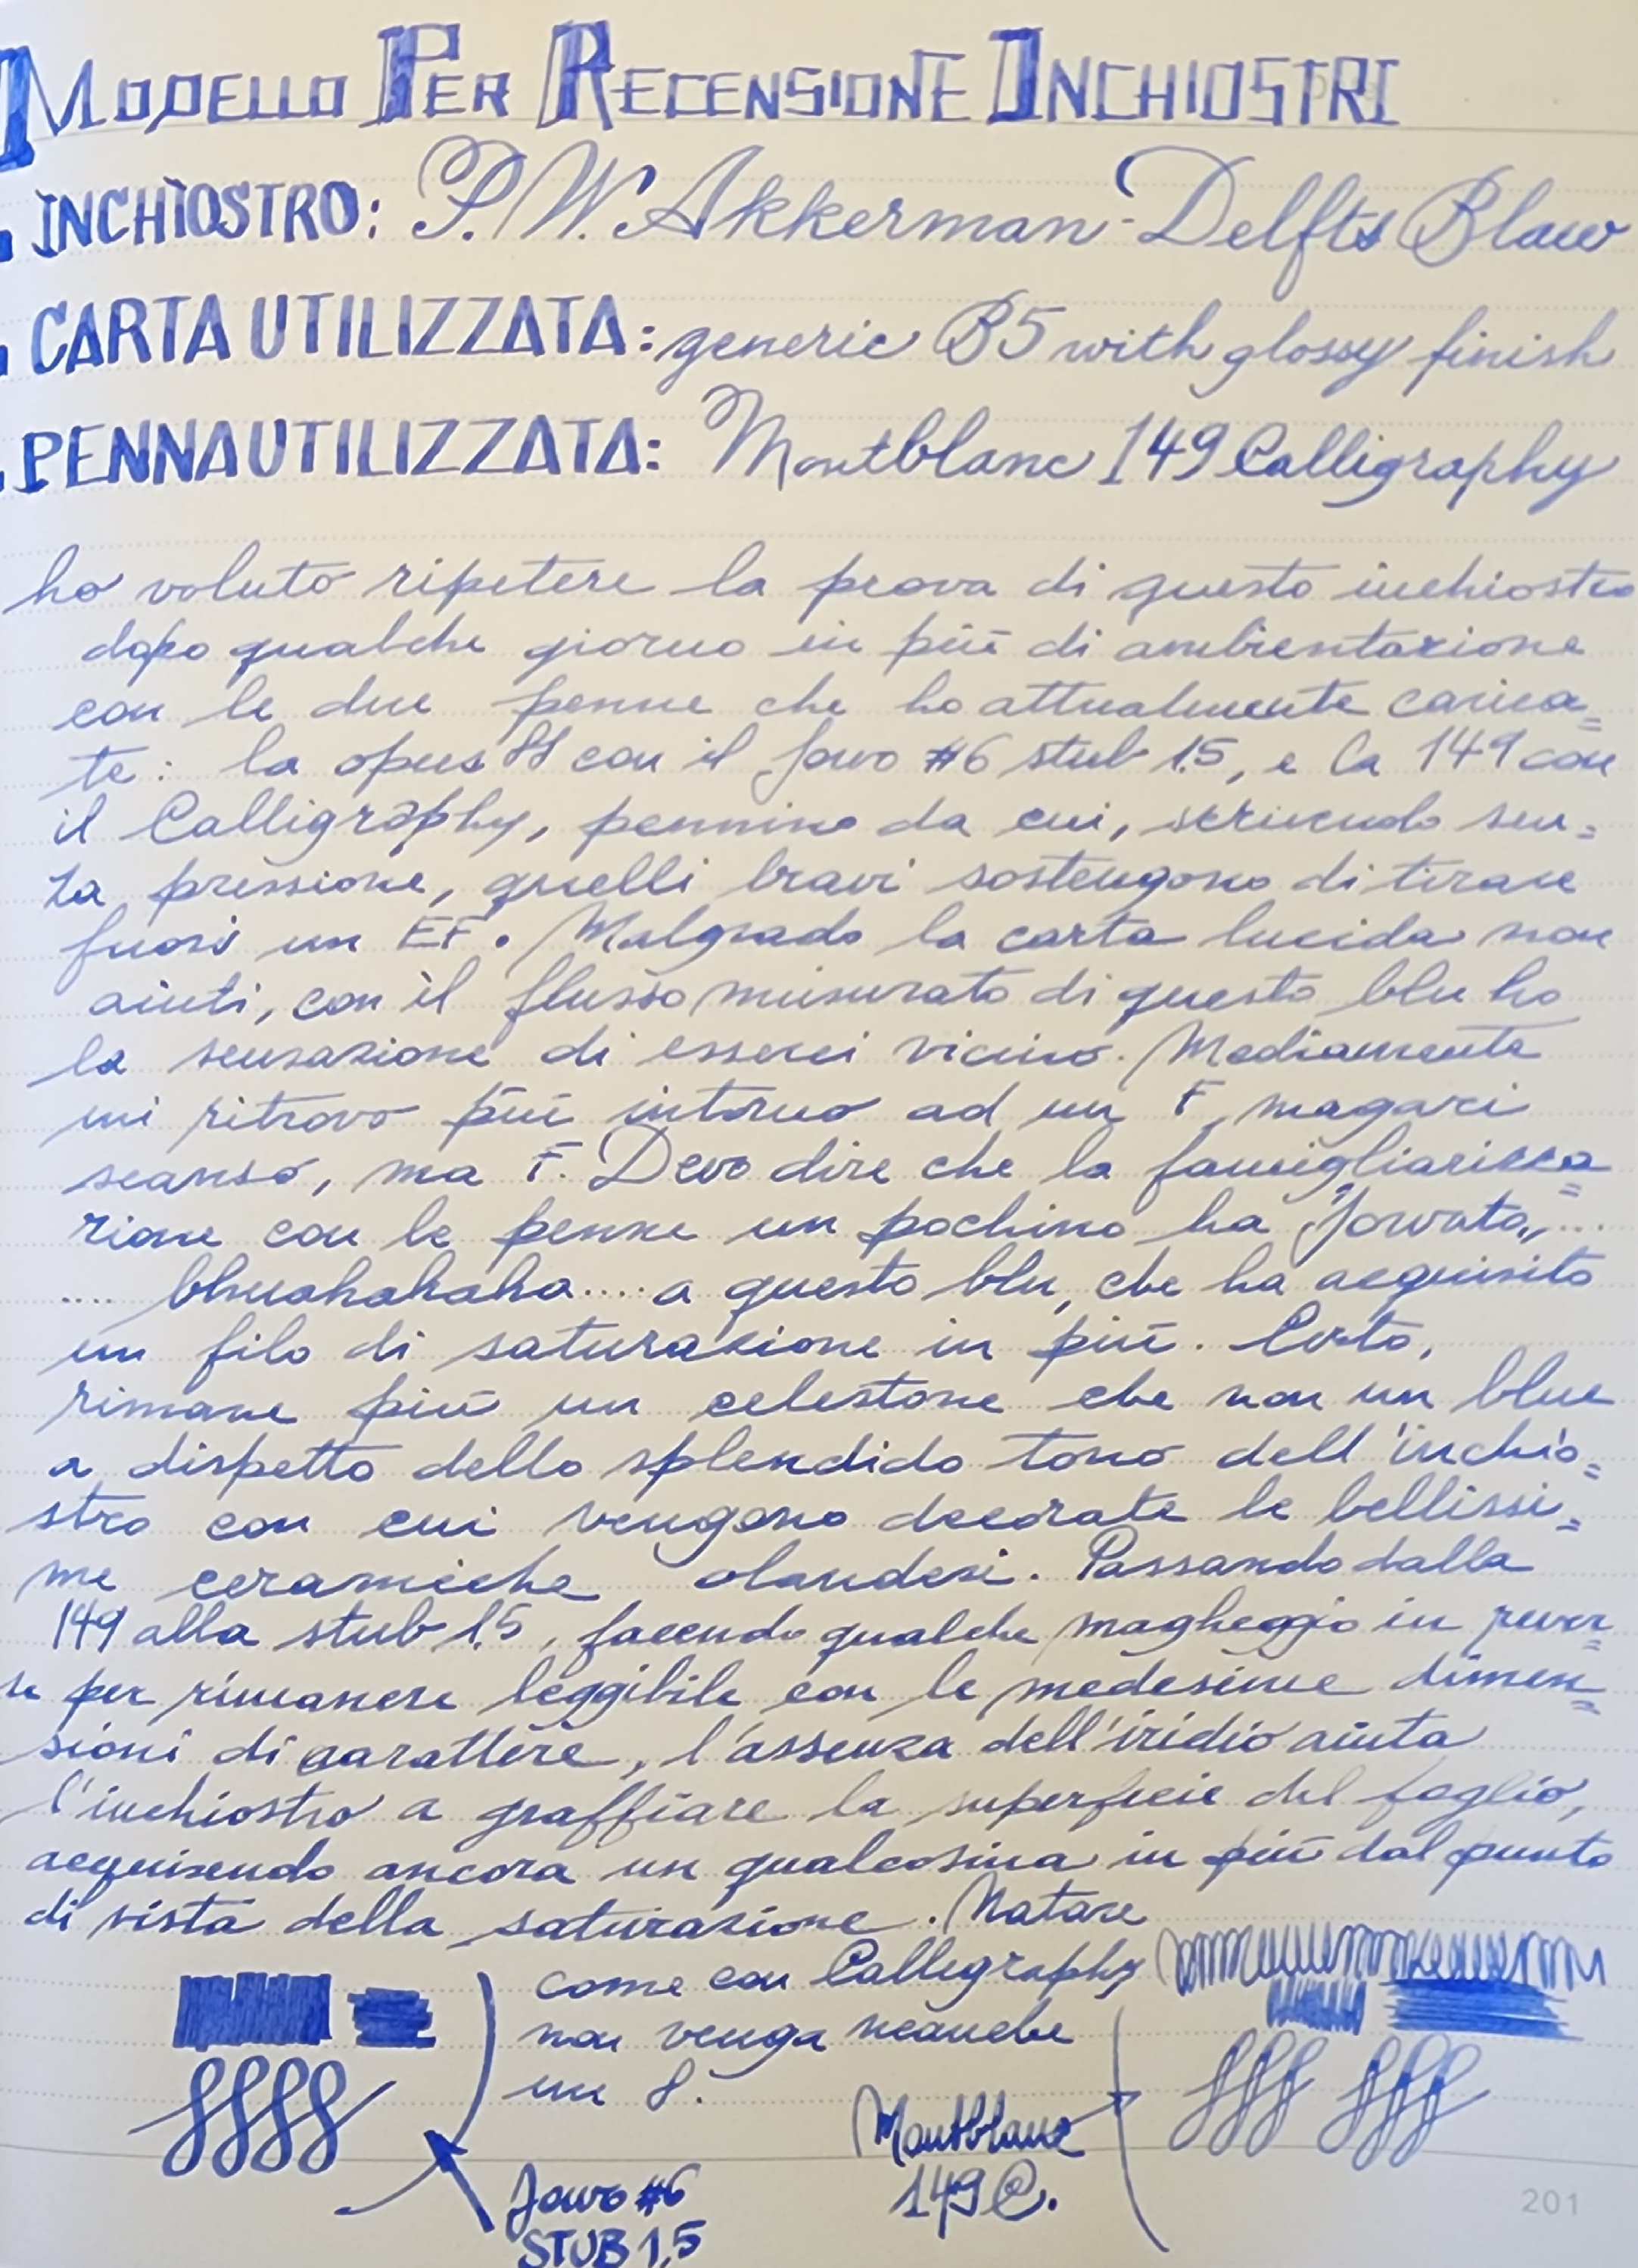 MODELLO PER RECENSIONE INCHIOSTRI
INCHIOSTRO: P.W. Akkerman - Delfts Blauw
CARTA UTILIZZATA: generic B5 with glossy finish
PENNA UTILIZZATA: Montblanc 149 Calligraphy
ho voluto ripetere la prova di questo inchiostro
dopo qualche giorno in più di ambientazione
con le due penne che ho attualmente carica=
te: la opus 88 con il Jowo #6 stub 1.5, e la 149 con
il Calligraphy, pennino da cui, scrivendo sen=
za pressione, quelli bravi sostengono di tirare
fuori un EF. Malgrado la carta lucida non
aiuti, con il flusso misurato di questo blu ho
la sensazione di esserci vicino. Mediamente
mi ritrovo più intorno ad un F, magari
scarso, ma F. Devo dire che la famigliarizza=
zione con le penne un pochino ha "Jowata"...
.... bhuahahaha.... a questo blu, che ha acquisito
un filo di saturazione in più. Certo,
rimane più un celestone che non un blue
a dispetto dello splendido tono dell'inchio=
stro con cui vengono decorate le bellissi=
me ceramiche olandesi. Passando dalla
149 alla stub 1.5, facendo qualche magheggio in rever=
se per rimanere leggibile con le medesime dimen=
sioni di carattere, l'assenza dell'iridio aiuta
l'inchiostro a graffiare la superficie del foglio,
acquisendo ancora un qualcosina in più dal punto
di vista della saturazione. Notare
come con Calligraphy
non venga neanche
un 8.
Montblanc
149 C.
Jowo #6
STUB 1,5
201